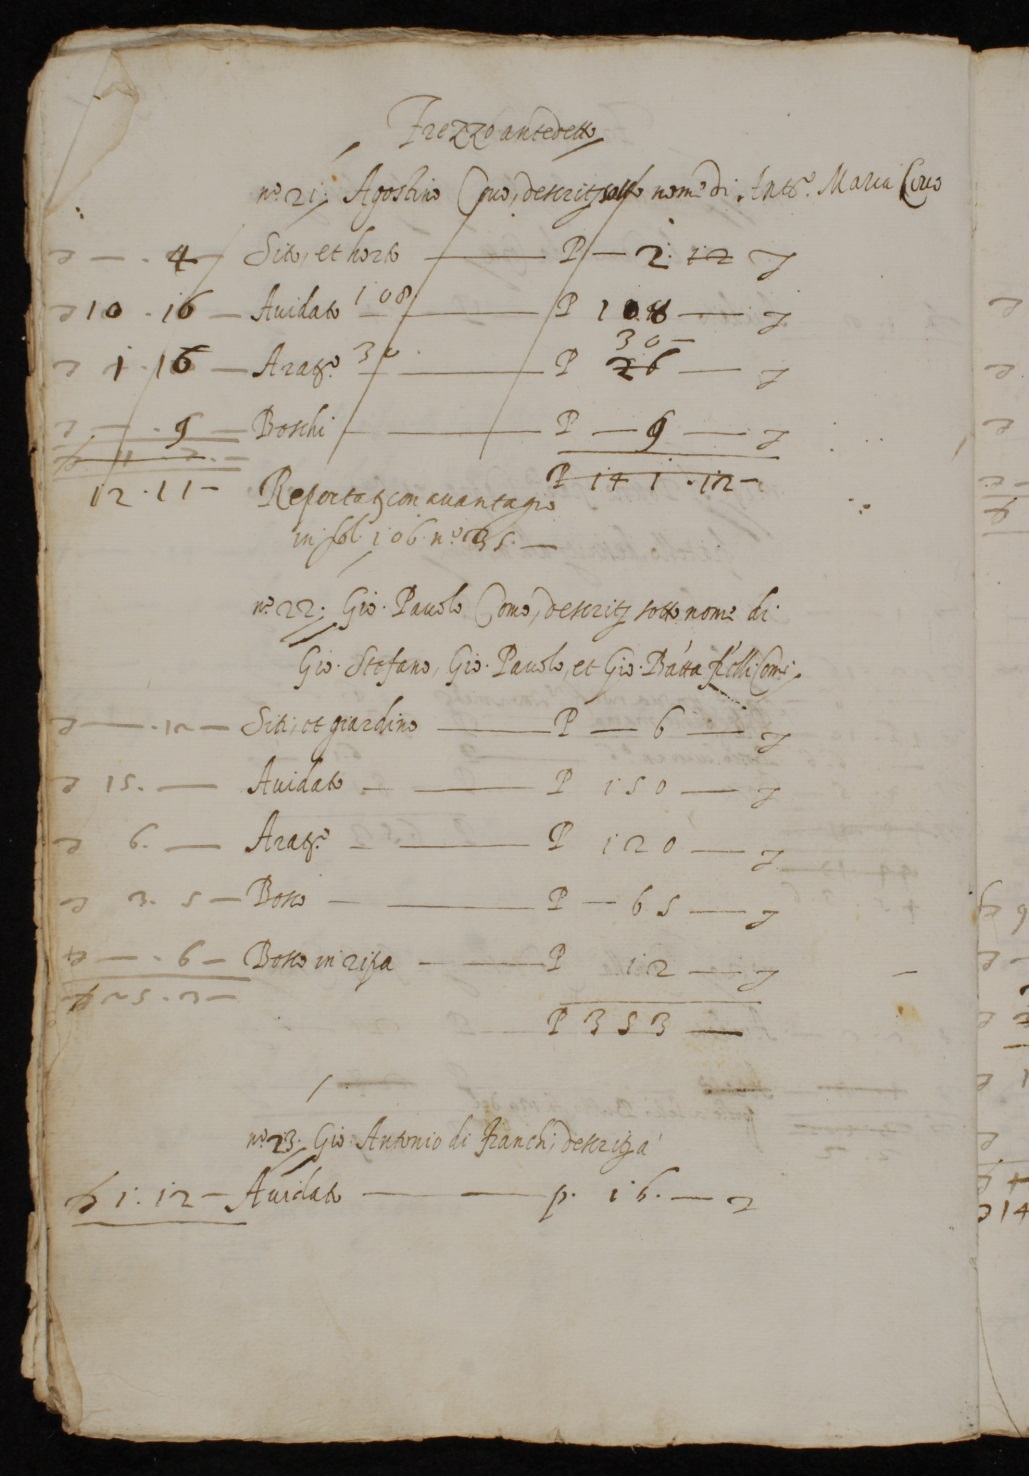 Frezzo antedetto
n.° 21; Agostino Cruo, descritt sotto nome di Ant.° Maria Cruo
— . 4 Sito, et horto — P — 2. 12
10 . 16 — Auidato 108 — P 108 —
30 —
1 . 16 — Arat.° 30 — P 26 —
— . 9 — Boschi — P — 9 —
P 141 . 12 —
12 . 11 — Reportat con auantagio
in fol. 106 n.° 35. —
n.° 22; Gio. Pauolo Como, descritt sotto nome di
Gio. Stefano, Gio. Pauolo, et Gio. Batta f̃elli Comi.
— . 12 — Siti, et giardino — P — 6 —
15. — Auidato — P 150 —
6. — Arat.° — P 120 —
3. 5 — Bosco — P — 65 —
— . 6 — Bosco in ripa — P 12 —
25 . 3 —
P 353 —
n.° 23. Gio. Antonio di Franchi, descritt a
1. 12 — Auidato — p. 16. —